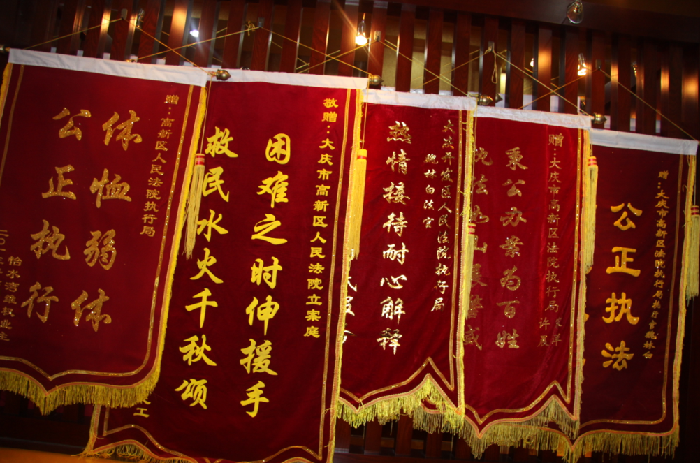 赠:高新区人民法院执行局
体恤弱体
公正执行
敬赠:大庆市高新区人民法院立案庭
困难之时伸援手
救民水火千秋颂
大庆开发区人民法院执行局
热情接待耐心解释
赠:大庆市高新区法院执行局
秉公办案为百姓
执法如山展警威
赠:大庆市高新区法院执行局
公正执法